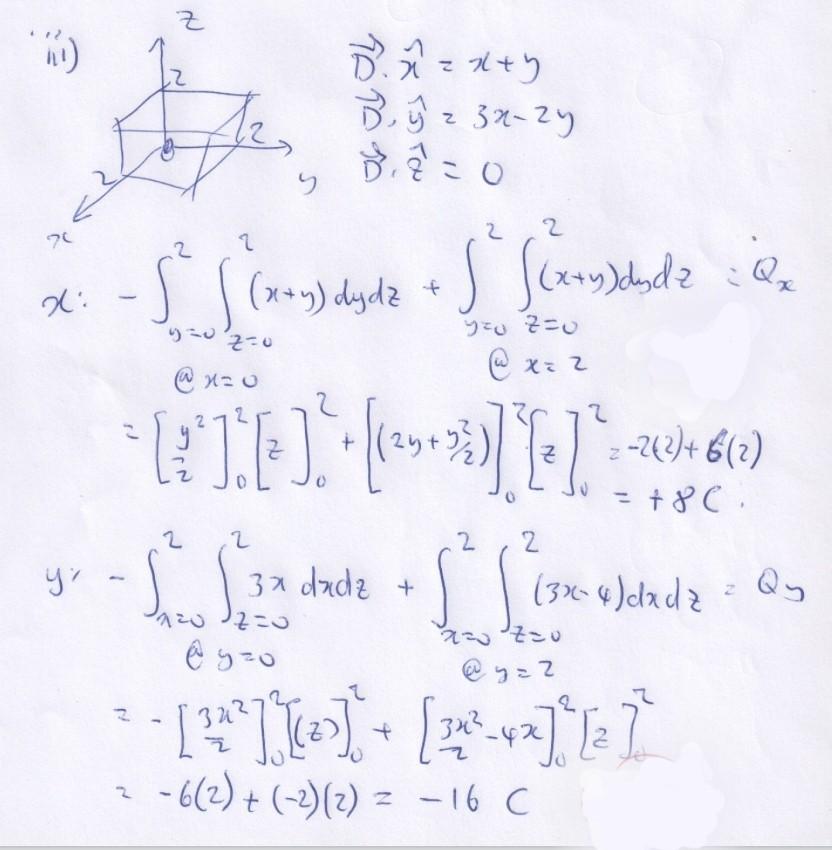 iii)
z
2
2
2
0
y
x
D⃗. x̂ = x+y
D⃗. ŷ = 3x-2y
D⃗. ẑ = 0
x: - ∫_{y=0}^{2} ∫_{z=0}^{2} (x+y) dydz + ∫_{y=0}^{2} ∫_{z=0}^{2} (x+y)dydz = Qx
@ x=0 @ x=2
= [y²/2]_0^2 [z]_0^2 + [(2y+y²/2)]_0^2 [z]_0^2 = -2(2)+6(2)
= +8C.
y: - ∫_{x=0}^{2} ∫_{z=0}^{2} 3x dxdz + ∫_{x=0}^{2} ∫_{z=0}^{2} (3x-4)dxdz = Qy
@ y=0 @ y=2
= -[3x²/2]_0^2 [(z)]_0^2 + [3x²/2-4x]_0^2 [z]_0^2
= -6(2)+(-2)(2) = -16 C